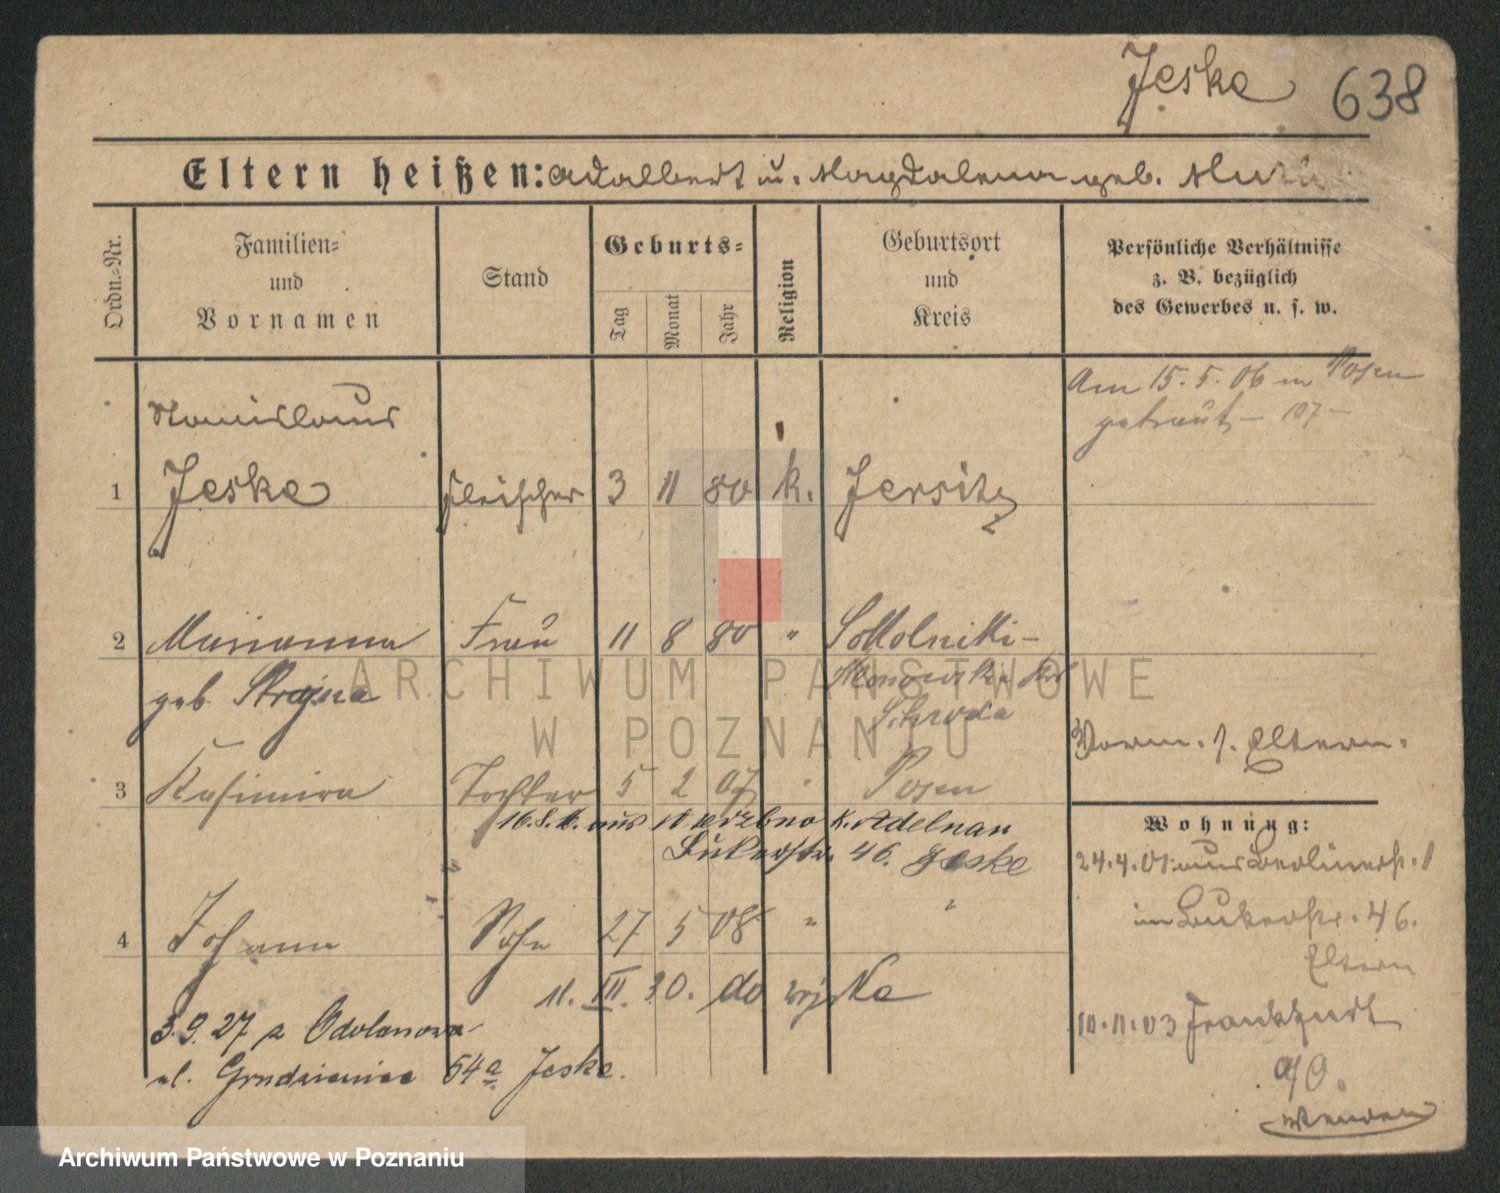 Jeske 638
Eltern heißen: Adalbert u. Magdalena geb.
Ordn.-Nr.
Familien-
und
Vornamen
Stand
Geburts-
Tag
Monat
Jahr
Religion
Geburtsort
und
Kreis
Persönliche Verhältnisse
z. B. bezüglich
des Gewerbes u. s. w.
Am 15.5.06 in Posen
getraut
Stanislaus
1 Jeske Fleischer 3 11 80 k. Jersitz
2 Marianna Frau 11 8 80 " Sokolniki-
geb.
Schroda
Vorm. s. Eltern.
3 Kasimira Tochter 5 2 07 " Posen
aus K. Adelnau
Bukerstr. 46. Jeske
Wohnung:
24.4.01 aus Berlinerstr. 1
in Bukerstr. 46.
Eltern
4 Johann Sohn 27 5 08 " "
11. III. 30. do wojska
10.11.03 Frankfurt
a/O.
Wenden
3.9.27 z Odolanowa
ul. Grudzieniec 54a Jeske.
ARCHIWUM PAŃSTWOWE
W POZNANIU
Archiwum Państwowe w Poznaniu